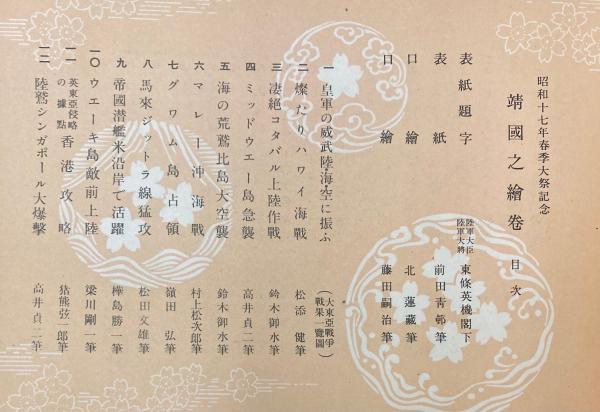 昭和十七年春季大祭記念
靖國之繪卷 目次
表紙題字 陸軍大臣 陸軍大將 東條英機閣下
表紙 前田靑邨筆
口繪 北蓮藏筆
口繪 藤田嗣治筆
一 皇軍の威武陸海空に振ふ (大東亞戰爭 戰果一覽圖)
二 燦たりハワイ海戰 松添健筆
三 凄絕コタバル上陸作戰 鈴木御水筆
四 ミッドウエー島急襲 高井貞二筆
五 海の荒鷲比島大空襲 鈴木御水筆
六 マレー沖海戰 村上松次郎筆
七 グワム島占領 嶺田弘筆
八 馬來ジットラ線猛攻 松田文雄筆
九 帝國潛艦米沿岸で活躍 樺島勝一筆
一〇 ウエーキ島敵前上陸 梁川剛一筆
一一 英東亞侵略の據點 香港攻略 猪熊弦一郎筆
一二 陸鷲シンガポール大爆擊 高井貞二筆